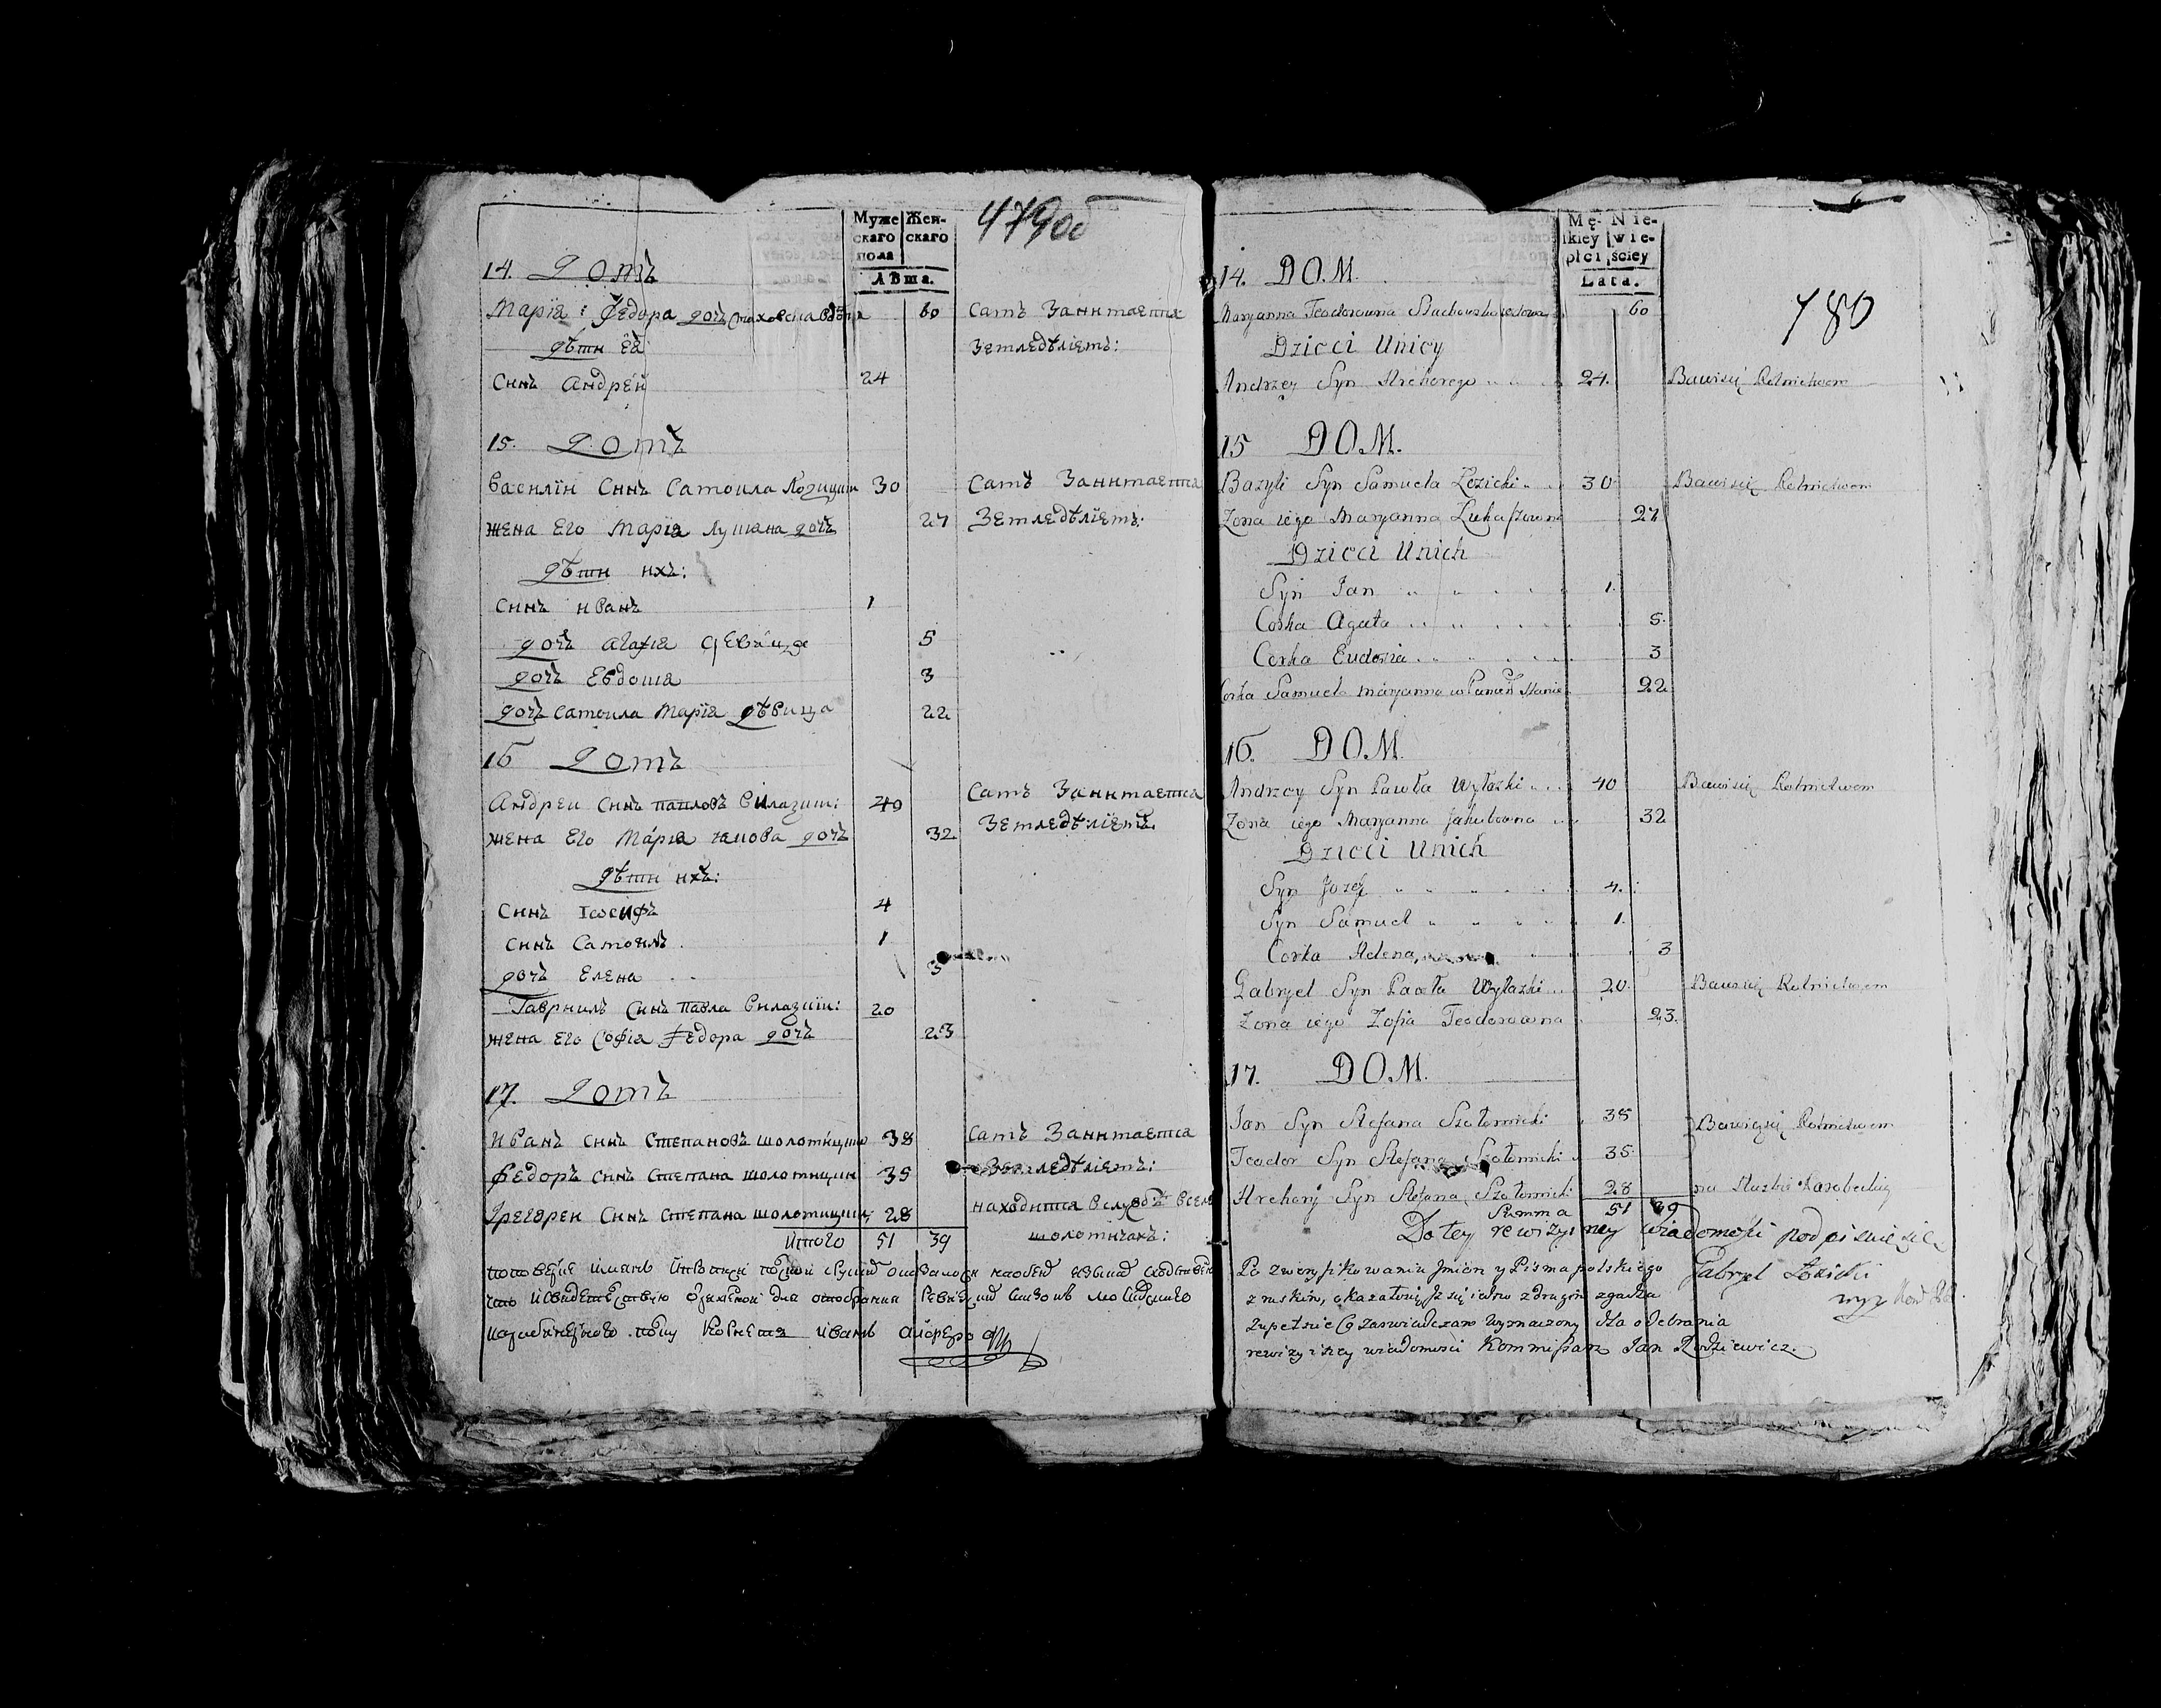 479об
Муже Жен-
скаго скаго
пола
Лѣта.
14. Домъ
Марїя: Федора дочъ 60 самъ Занимается
дѣти Ея Земледѣлїемъ:
Синъ Андрей 24
15. Домъ
Василїй Синъ Самоила Лозицки 30 самъ Занимается
жена Его Марїя Лукаша дочъ 27 Земледѣлїемъ:
дѣти ихъ:
Синъ иванъ 1
дочъ агафїя девица 5
дочъ Евдокия 3
дочъ самоила Марїя дѣвица 22
16 Домъ
Андреи Синъ павловъ Вилазкии: 40 самъ Занимается
жена Его Марїя якова дочъ 32 Земледѣлїемъ.
дѣти ихъ:
Синъ Іѡсифъ 4
Синъ Самоилъ 1
дочъ Елена 3
Гавриилъ Синъ павла Вилазкїи: 20
жена Его Софїя Федора дочъ 23
17. Домъ
иванъ синъ Степановъ шоломицки 38 самъ Занимается
федоръ синъ Степана шоломицки 35 Земледѣлїемъ:
Грегореи Синъ Степана шоломицки: 28 находится в
Итого 51 39 шоломичахъ:
Корнетъ иванъ
780
Mę- Nie-
skiey wie-
płci ściey
Lata.
14. DOM.
Maryanna Teodorowna Stachowska wdowa 60
Dzieci Unicy
Andrzey Syn Hrehorego 24. Bawisię Rolnictwem
15 DOM.
Bazyli Syn Samuela Łozicki 30 Bawisię Rolnictwem
Zona iego Maryanna Łukaszowna 27
Dzieci Unich
Syn Jan 1.
Corka Agata 5.
Corka Eudoxia 3
Corka Samuela Maryanna w Panień Stanie 22
16. DOM.
Andrzey Syn Pawła Wyłazki 40 Bawisię Rolnictwem
Zona iego Maryanna Jakubowna 32
Dzieci Unich
Syn Jozef 4.
Syn Samuel 1.
Corka Helena 3
Gabryel Syn Pawła Wyłazki 20. Bawisię Rolnictwem
Zona iego Zofia Teodorowna 23.
17. DOM.
Jan Syn Stefana Szołomicki 38 Bawiąsię Rolnictwem
Teodor Syn Stefana Szołomicki 35
Hrehory Syn Stefana Szołomicki 28 na Służbie Parobeckiey
Summa 51 39
Do tey rewizyiney wiadomości podpisuie się
Gabryel Łozicki
Po zweryfikowaniu Jmion y Pisma polskiego
z ruskim, okazałosię iż się iedno z drugim zgadza
zupełnie Co zaswiadczam wyznaczony dla odebrania
rewizyiney wiadomości Kommissarz Jan Rodziewicz.